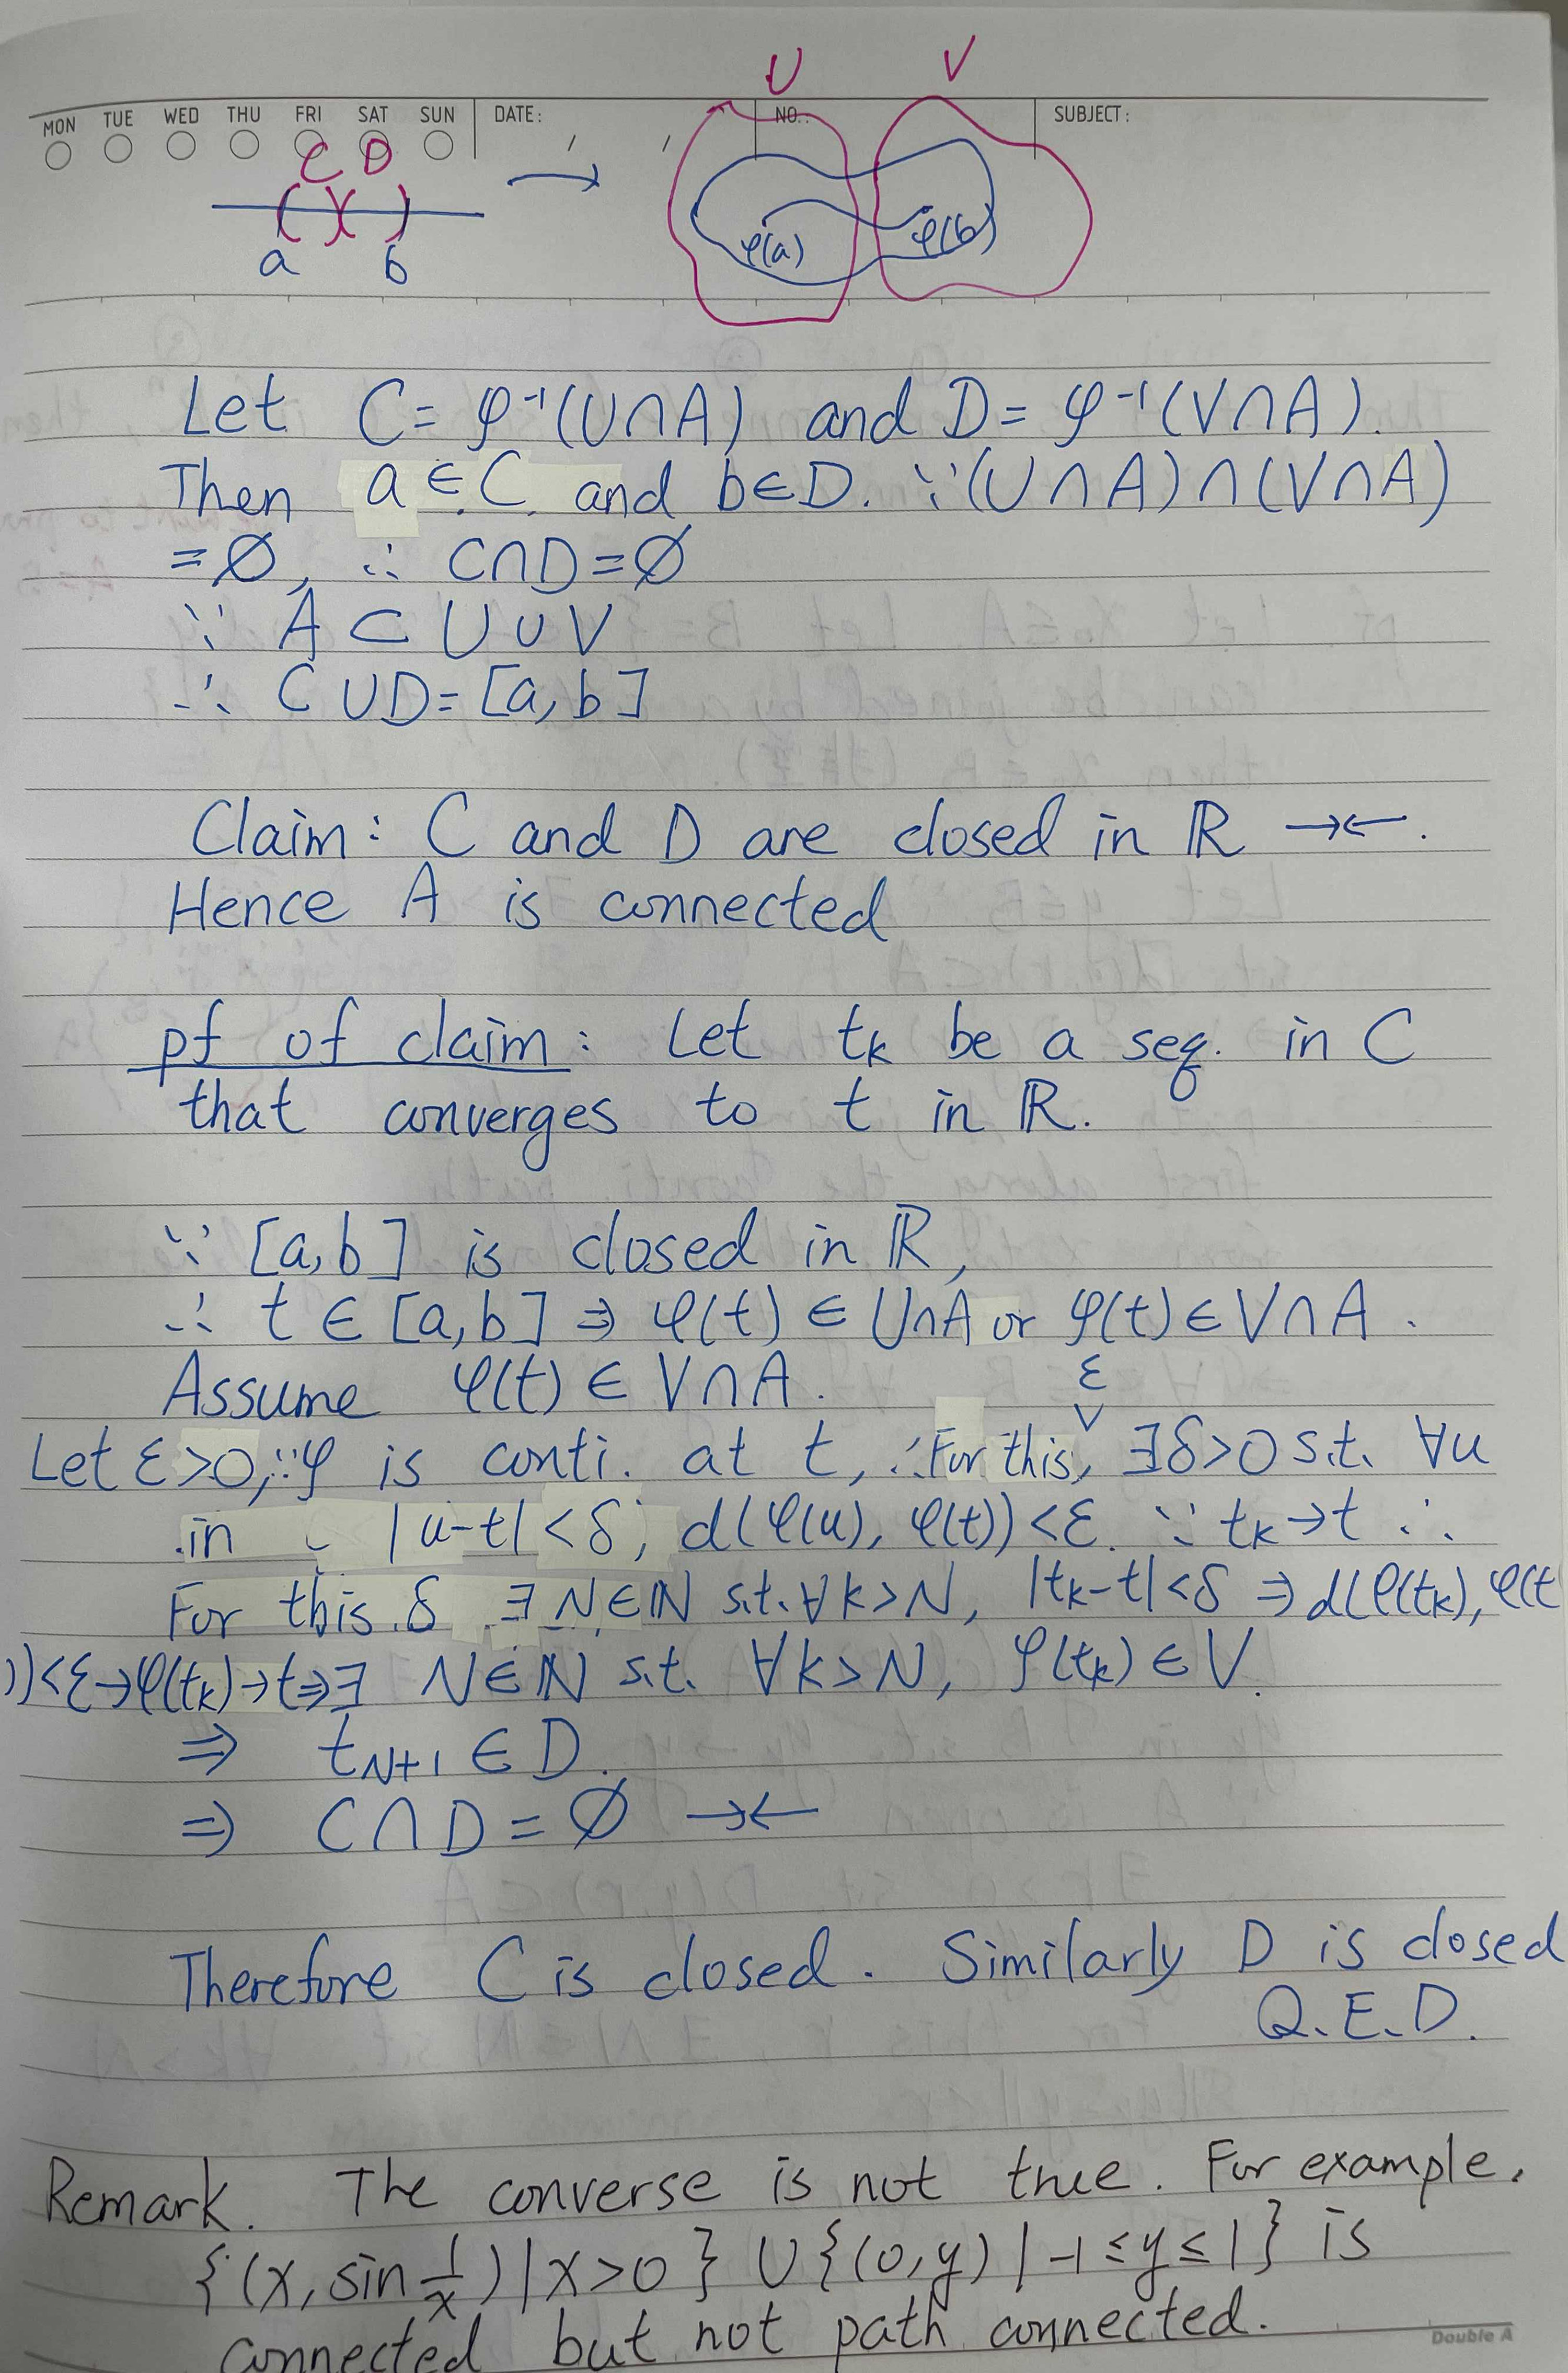 U V
MON TUE WED THU FRI SAT SUN DATE: / / NO.: SUBJECT:
C D
a b
φ(a) φ(b)
Let C = φ⁻¹(U∩A) and D = φ⁻¹(V∩A).
Then a ∈ C and b∈D. ∵(U∩A)∩(V∩A)
=∅, ∴ C∩D=∅
∵ A ⊂ U∪V
∴ C∪D=[a,b]
Claim: C and D are closed in ℝ →←.
Hence A is connected
pf of claim: Let tₖ be a seq. in C
that converges to t in ℝ.
∵ [a,b] is closed in ℝ,
∴ t ∈ [a,b] ⇒ φ(t) ∈ U∩A or φ(t)∈V∩A.
Assume φ(t) ∈ V∩A.
ε
∨
Let ε>0,∵φ is conti. at t, ∴For this, ∃δ>0 s.t. ∀u
in |u-t|<δ, d(φ(u), φ(t))<ε. ∵ tₖ→t ∴
For this δ ∃N∈ℕ s.t.∀k>N, |tₖ-t|<δ ⇒ d(φ(tₖ), φ(t
))<ε→φ(tₖ)→t⇒∃ N∈ℕ s.t. ∀k>N, φ(tₖ)∈V.
⇒ t_{N+1} ∈ D.
⇒ C∩D=∅ →←
Therefore C is closed. Similarly D is closed
Q.E.D.
Remark. The converse is not true. For example,
{(x, sin 1/x) | x>0} ∪ {(0,y) | -1≤y≤1} is
connected but not path connected.
Double A